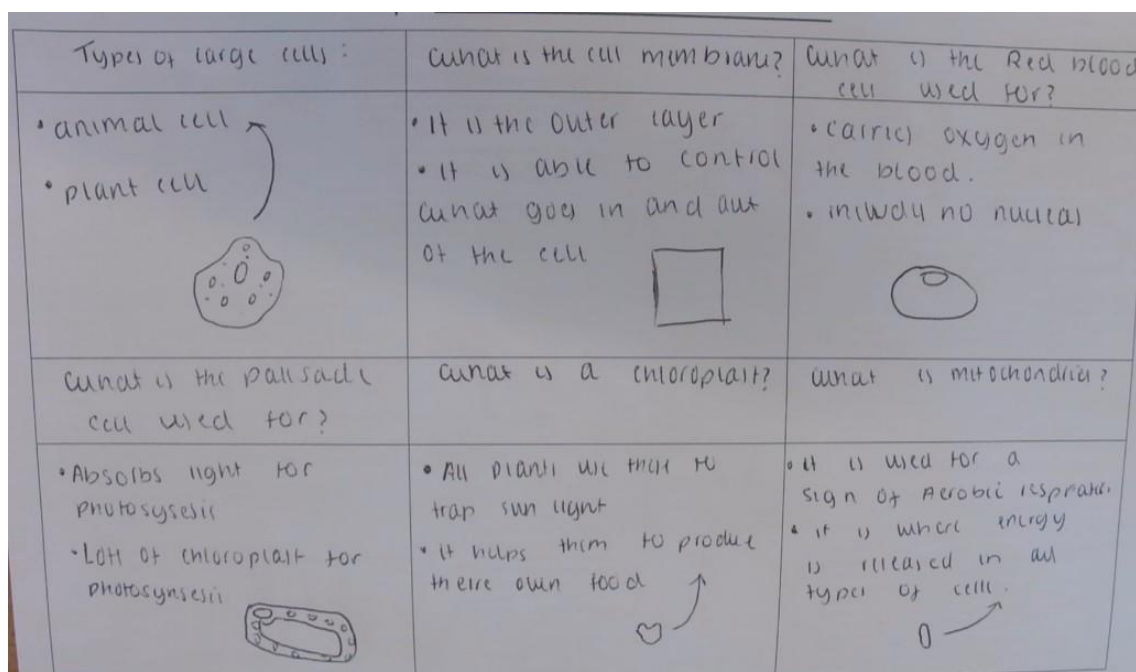 Types of large cells:
What is the cell membrane?
What is the Red blood
cell used for?
• animal cell
• plant cell
• It is the outer layer
• It is able to control
what goes in and out
of the cell
• carries oxygen in
the blood.
• no nucleas
What is the palisade
cell used for?
What is a chloroplast?
What is mitochondria?
• Absorbs light for
photosysesis
• Lots of chloroplast for
photosynsesis
• All plants use these to
trap sun light
• it helps them to produce
theire own food
• it is used for a
sign of Aerobic
• it is where energy
is released in all
types of cells.